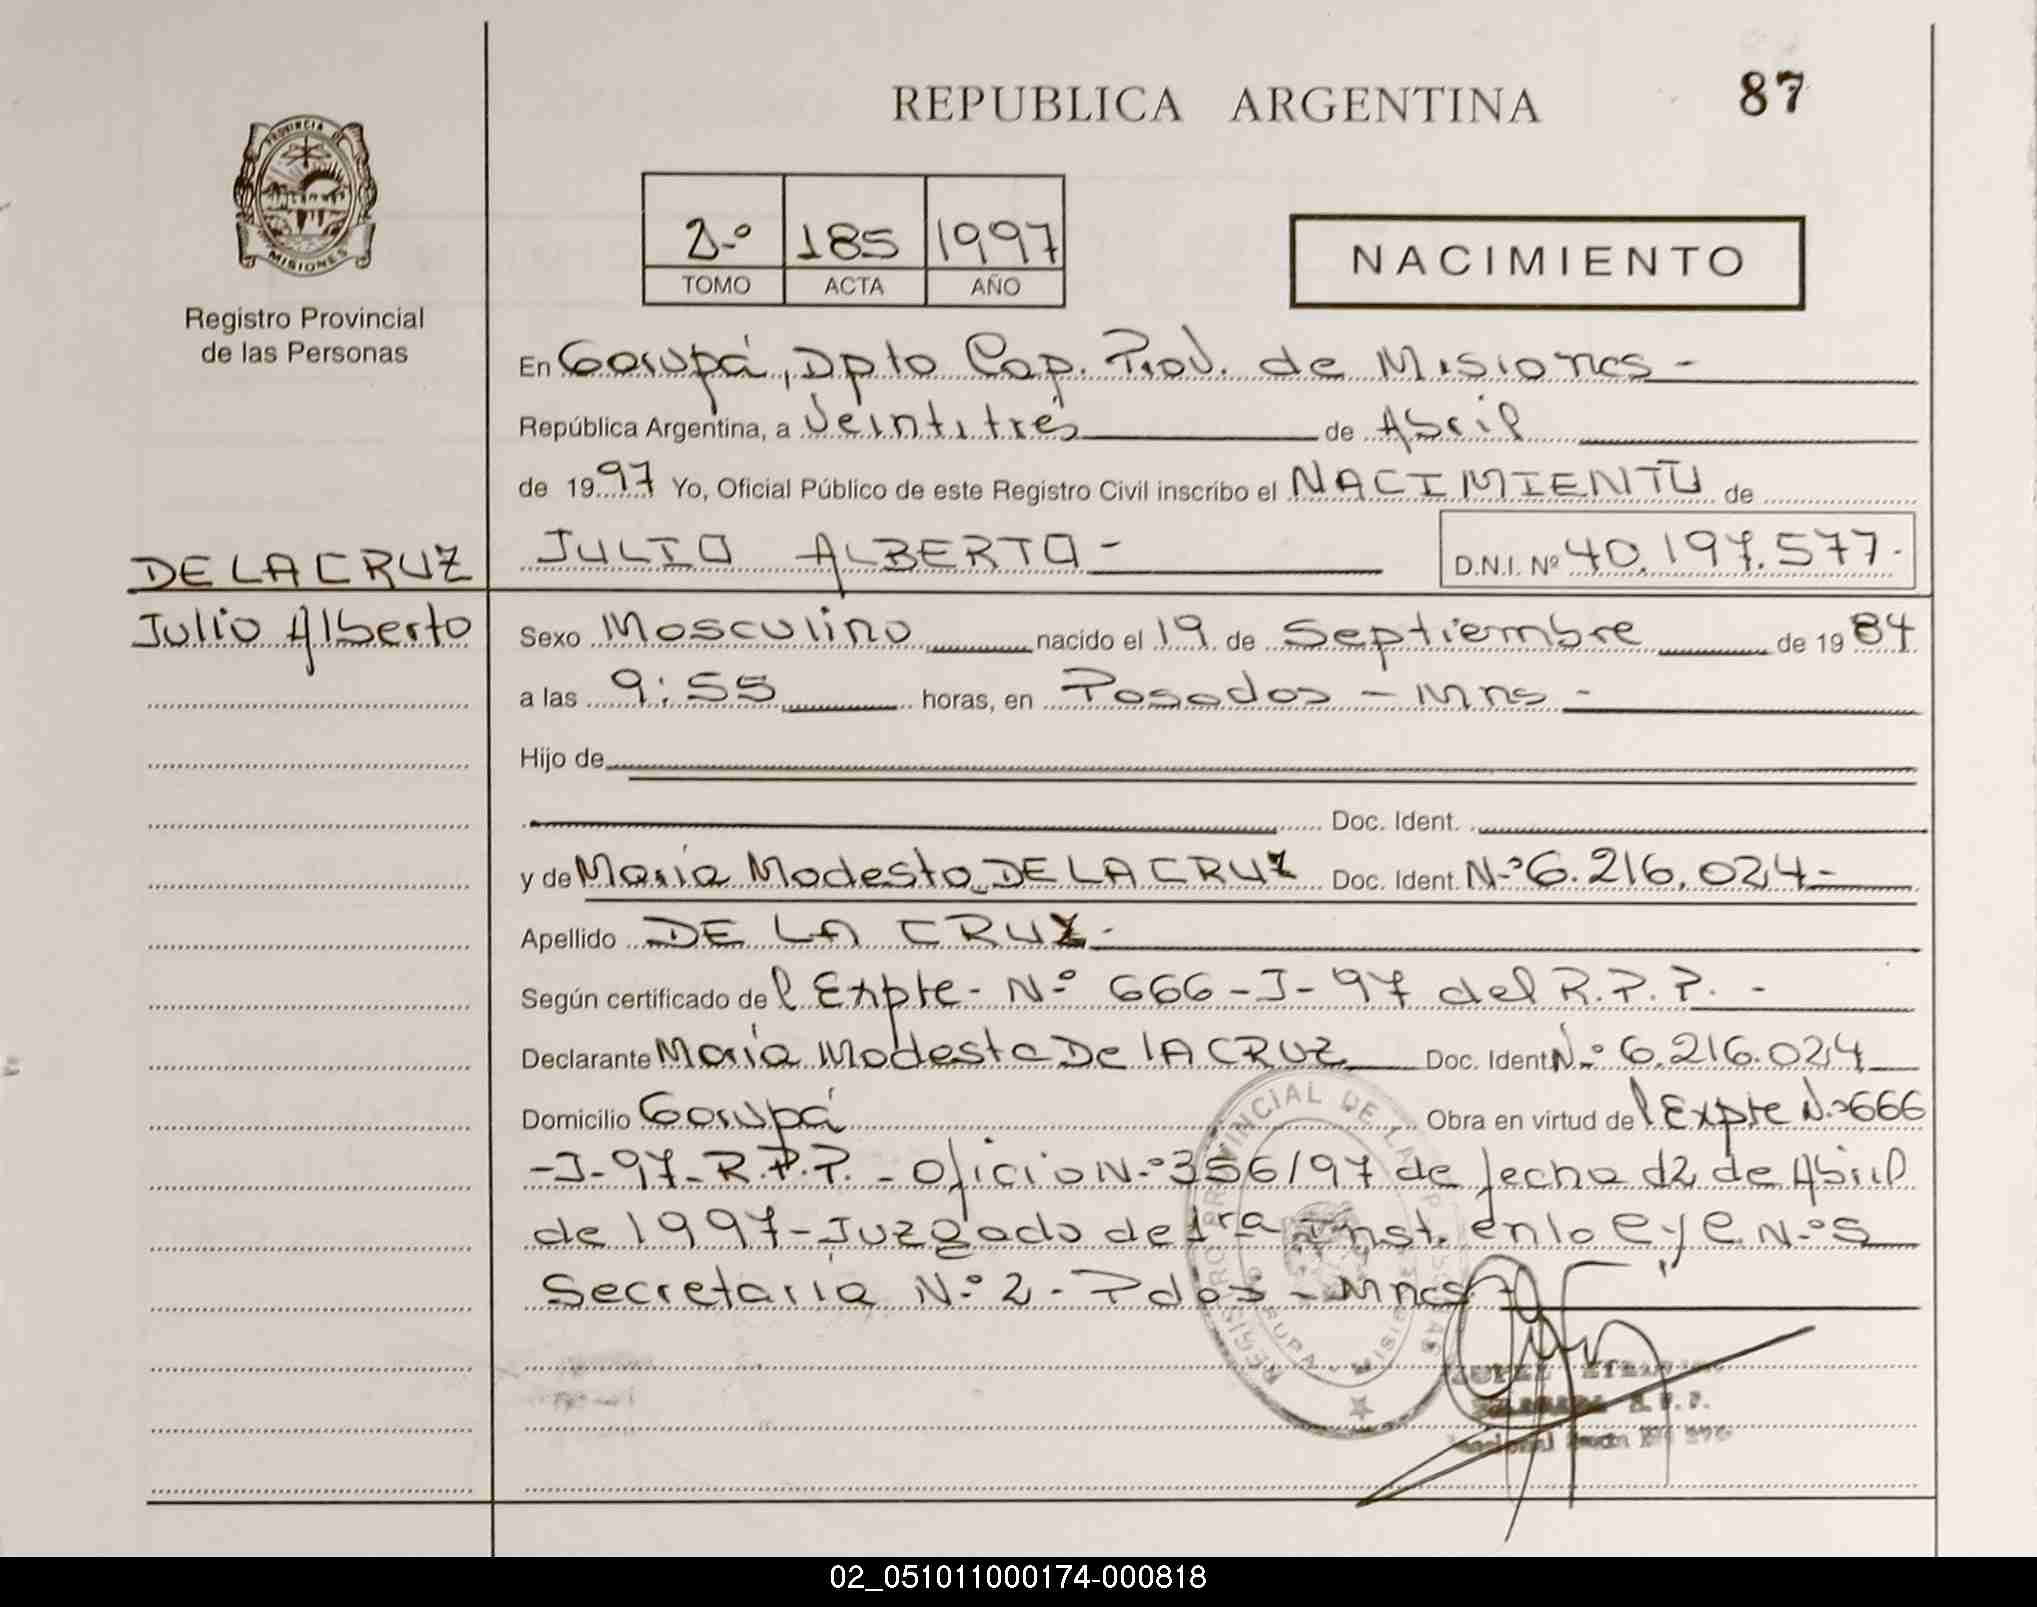 REPUBLICA ARGENTINA
87
PROVINCIA DE
MISIONES
Registro Provincial
de las Personas
2.º 185 1997
TOMO ACTA AÑO
NACIMIENTO
En Garupá, Dpto Cap. Prov. de Misiones -
República Argentina, a Veintitrés de Abril
de 1997 Yo, Oficial Público de este Registro Civil inscribo el NACIMIENTO de
JULIO ALBERTO - D.N.I. Nº 40.197.577.
DE LA CRUZ
Julio Alberto
Sexo Masculino nacido el 19 de Septiembre de 1984
a las 9:55 horas, en Posadas - Mnes -
Hijo de
Doc. Ident.
y de María Modesta DE LA CRUZ Doc. Ident. N.º 6.216.024 -
Apellido DE LA CRUZ -
Según certificado del Expte - N.º 666-I-97 del R.P.P. -
Declarante María Modesta De lA CRUZ Doc. Ident N.º 6.216.024
Domicilio Garupá Obra en virtud del Expte N.º 666
-I-97-R.P.P. - Oficio N.º 356/97 de fecha 12 de Abril
de 1997 - Juzgado de 1ra Inst. en lo C y C. N.º 5
Secretaría N.º 2 - Pdas - Mnes
REGISTRO PROVINCIAL DE LAS PERSONAS
GARUPA - MISIONES
R.P.P.
02_051011000174-000818